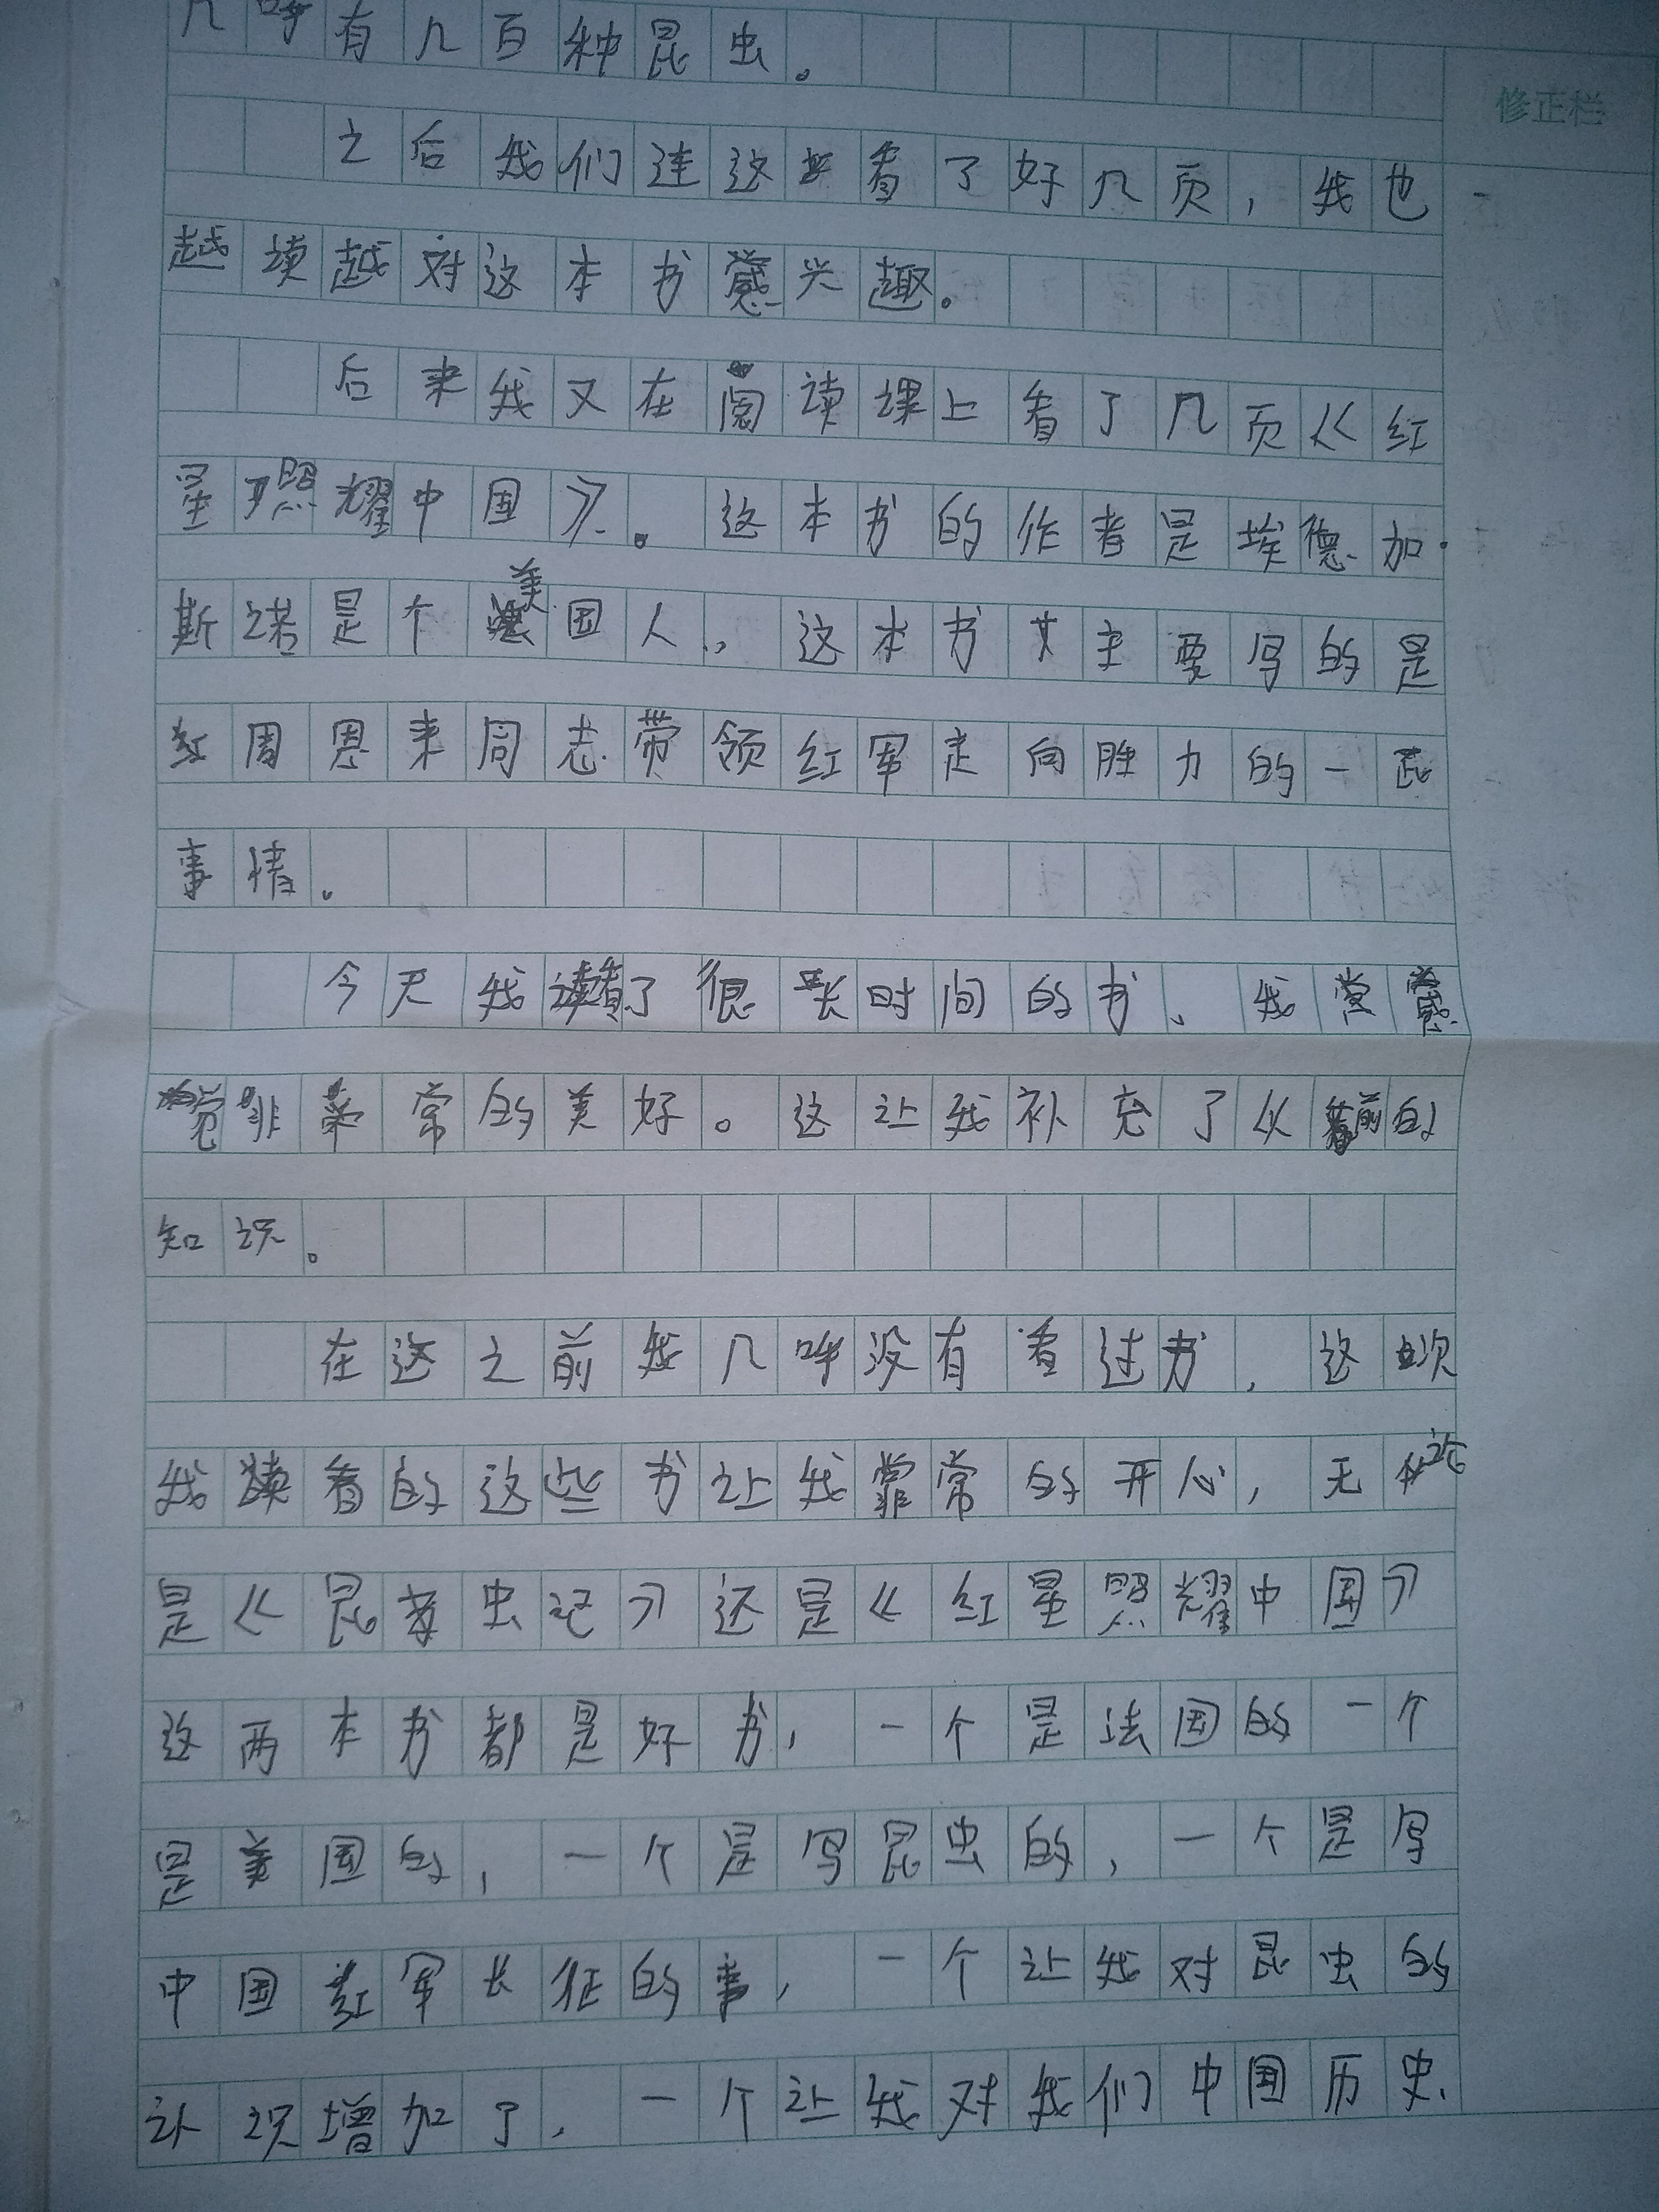 几呼有几百种昆虫。
修正栏
之后我们连这看了好几页，我也
越读越对这本书感兴趣。
后来我又在阅读课上看了几页《红
星照耀中国》。这本书的作者是埃德加·
斯诺是个美国人，这本书主要写的是
周恩来同志带领红军走向胜力的一段
事情。
今天我看了很长时间的书、我感
觉非常的美好。这让我补充了从前的
知识。
在这之前我几呼没有看过书，这次
我看的这些书让我非常的开心，无论
是《昆虫记》还是《红星照耀中国》
这两本书都是好书，一个是法国的一个
是美国的，一个是写昆虫的，一个是写
中国红军长征的事，一个让我对昆虫的
认识增加了，一个让我对我们中国历史、